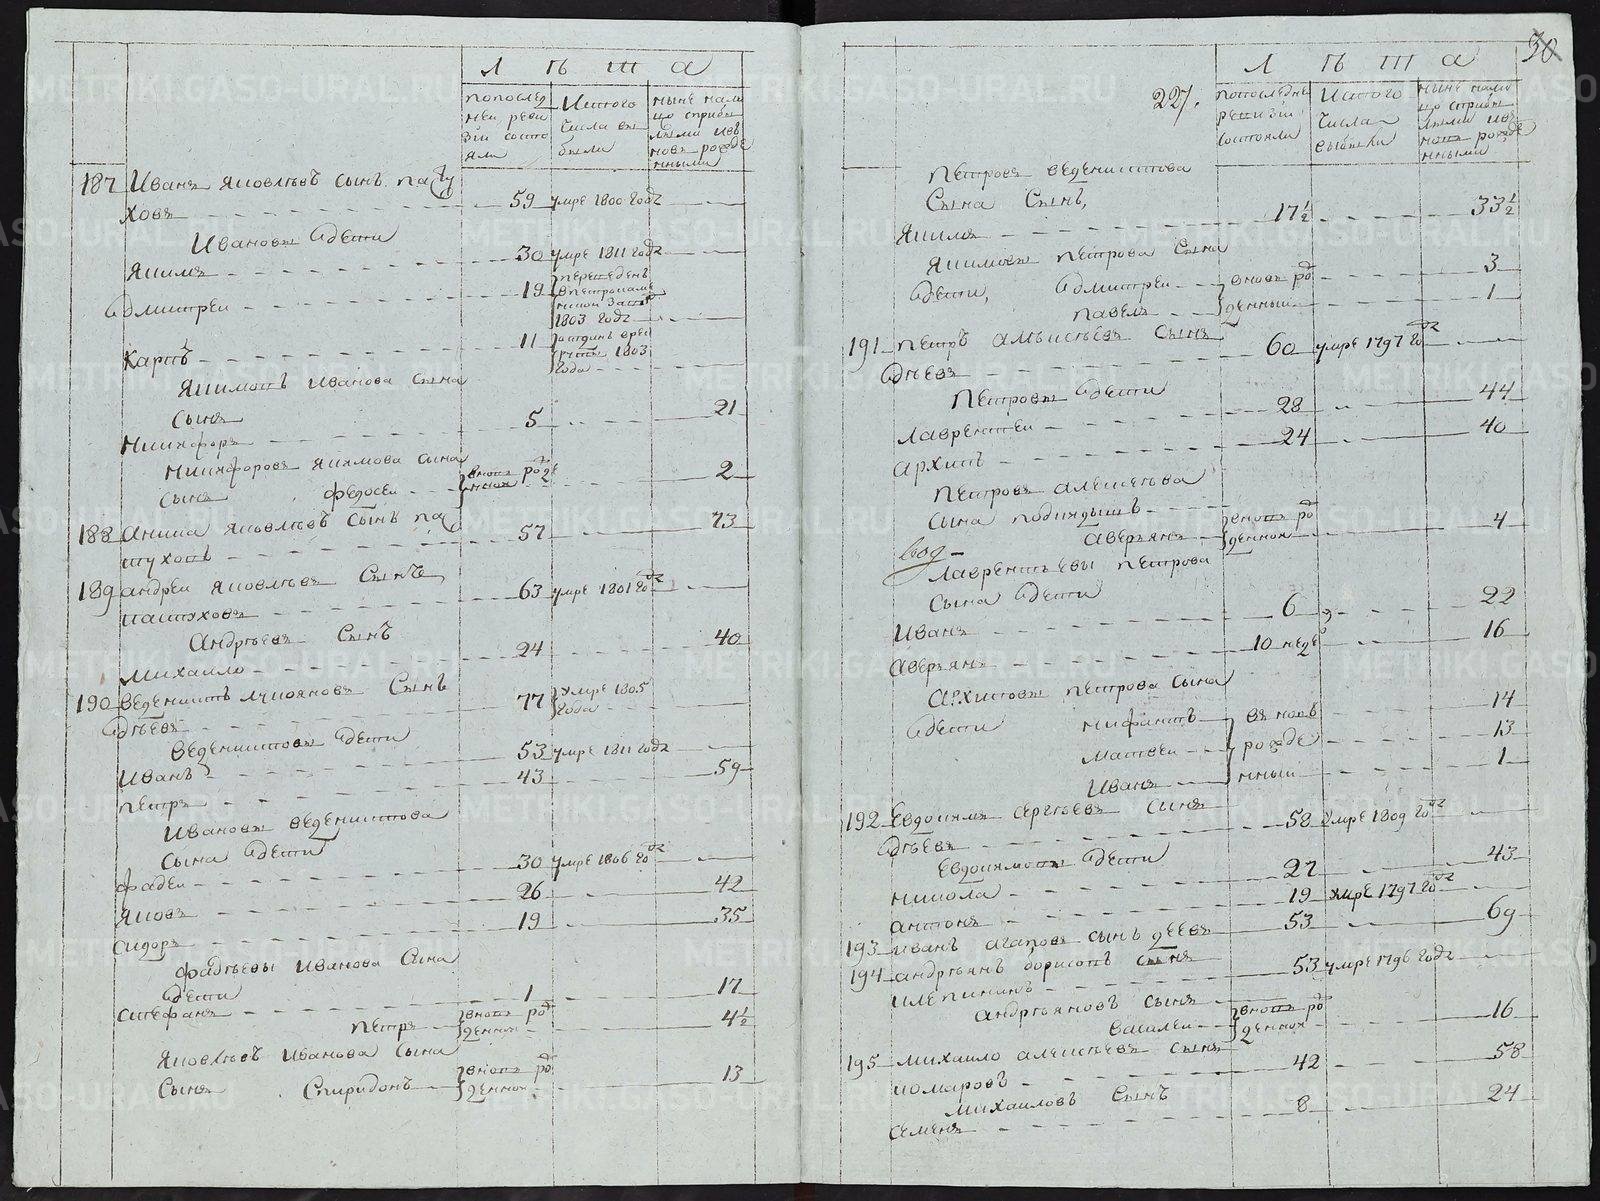 Л ѣ т а
попослед
ней реви
зїи состо
яли
Изтого
числа вы
были
ныне нали
цо сприбы
лыми ивъ
новь рожде
нными
187 Иванъ яковлевъ сынъ пасту
ховъ 59 умре 1800 года
Ивановы дети
якимъ 30 умре 1811 года
дмитреи 19 переведенъ
впетрокаме
нской завод
1803 года
Карпъ 11 отданъ врек
руты 1803
года
якимовъ Иванова сына
сынъ
никифоръ 5 21
никифоровъ якимова сына
сынъ федосеи вновь рожде
нной 2
188 аника яковлевъ сынъ па
стуховъ 57 73
189 андреи яковлевъ сынъ
пастуховъ 63 умре 1801 года
андреевъ сынъ
михаило 24 40
190 веденихтъ лукояновъ сынъ
деевъ 77 умре 1805
года
веденихтовы дети
Иванъ 53 умре 1811 года
петръ 43 59
Ивановы веденихтова
сына дети
фадеи 30 умре 1806 года
яковъ 26 42
сидоръ 19 35
фадеевы Иванова сына
дети
стефанъ 1 17
петръ вновь рож
денной 4½
яковлевъ Иванова сына
сынъ спиридонъ вновь рож
денной 13
30
227.
Л ѣ т а
попоследне
ревизїи
состояли
Изтого
числа
выбыли
ныне нали
цо сприбы
лыми ив
новь рожде
нными
петровъ веденихтова
сына сынъ,
якимъ 17½ 33½
якимовы петрова сына
дети, дмитреи вновь рож 3
павелъ денныи 1
191 петръ алексеевъ сынъ
деевъ 60 умре 1797 года
петровы дети
лаврентеи 28 44
архипъ 24 40
петровъ алексеева
сына подкидышъ
аверьянъ вновь рож
денной 4
лаврентьевы петрова
сына дети
Иванъ 6 22
аверьянъ 10 неде 16
архиповы петрова сына
дети нифантъ въ новь 14
матвеи рожде 13
Иванъ нныи 1
192 Евдокимъ сергеевъ сынъ
деевъ 58 умре 1809 года
Евдокимовы дети
никола 27 43
антонъ 19 умре 1797 года
193 иванъ агаповъ сынъ деевъ 53 69
194 андреянъ борисовъ сынъ
клепининъ 53 умре 1796 года
андреяновъ сынъ
василеи вновь рож
денной 16
195 михаило алексеевъ сынъ
комаровъ 42 58
михаиловъ сынъ
семенъ 8 24